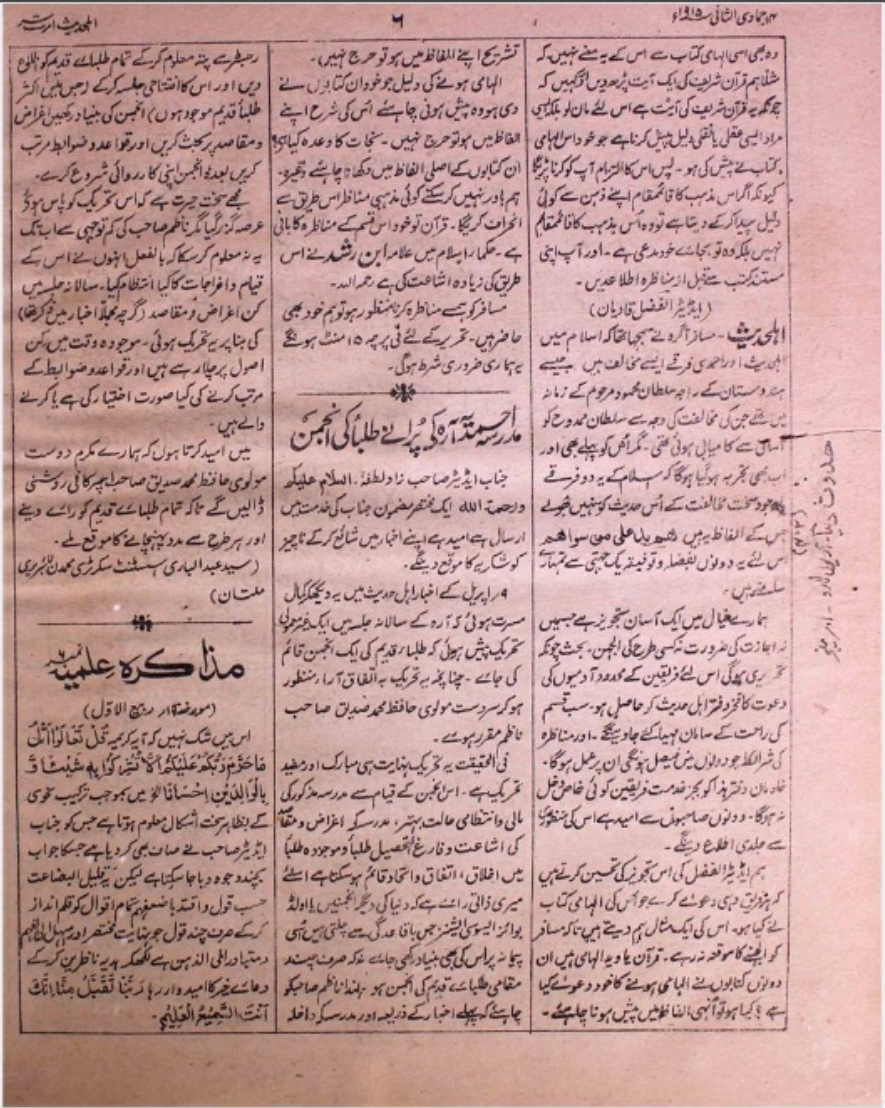 ۱۴ جمادی الثانی ۱۹۱۵ء
۶
اہلحدیث امرت سر
وہ بھی اسی الہامی کتاب سے اس کے یہ معنے نہیں کہ
مثلاً ہم قرآن شریف کی ایک آیت پڑھ دیں اور کہیں کہ
چونکہ یہ قرآن شریف کی آیت ہے اس لئے مان لو بلکہ میری
مراد ایسی عقلی یا نقلی دلیل پیش کرنا ہے جو خود اس الہامی
کتاب نے پیش کی ہو۔ پس اس کا التزام آپ کو کرنا پڑیگا
کیونکہ اگر اس مذہب کا قائمقام اپنے ذہن سے کوئی
دلیل پیدا کر کے دیتا ہے تو وہ اس مذہب کا قائمقام
نہیں بلکہ وہ تو بجائے خود مدعی ہے۔ اور آپ اپنی
مستند کتب سے قبل از مناظرہ اطلاع دیں۔
(ایڈیٹر الفضل قادیان)
اہلحدیث۔ مسافر آگرہ نے سمجھا تھا کہ اسلام میں
اہلحدیث اور احمدی فرقے ایسے مخالف ہیں جیسے
ہندوستان کے راجہ سلطان محمود مرحوم کے زمانہ
میں تھے جن کی مخالفت کی وجہ سے سلطان ممدوح کو
آسانی سے کامیابی ہوئی تھی۔ مگر اس کو پہلے بھی اور
اب بھی تجربہ ہو گیا ہوگا کہ اسلام کے یہ دو فرقے
باوجود سخت مخالفت کے اس حدیث کو نہیں بھولے
جس کے الفاظ یہ ہیں ھم ید علی من سواھم
اس لئے یہ دونوں بفضلہ و توفیقہ یک جہتی سے تمہارے
سامنے ہیں۔
ہمارے خیال میں ایک آسان تجویز ہے جس میں
نہ اجازت کی ضرورت نہ کسی طرح کی الجھن۔ بحث چونکہ
تحریری ہوگی اس لئے فریقین کے محدود آدمیوں کی
دعوت کا فخر دفتر اہل حدیث کو حاصل ہو۔ سب قسم
کی راحت کے سامان مہیا کئے جاوینگے۔ اور مناظرہ
کی شرائط جو دونوں میں فیصل ہونگی ان پر عمل ہوگا۔
خادمان دفتر ہذا کو بجز خدمت فریقین کوئی خاص دخل
نہ ہوگا۔ دونوں صاحبوں سے امید ہے اس کی منظوری
سے جلدی اطلاع دینگے۔
ہم ایڈیٹر الفضل کی اس تجویز کی تحسین کرتے ہیں
کہ ہر فریق وہی دعوے کرے جو اس کی الہامی کتاب
نے کیا ہو۔ اس کی ایک مثال ہم دیتے ہیں تاکہ مسافر
کو الجھنے کا موقعہ نہ رہے۔ قرآن یا وید الہامی ہیں ان
دونوں کتابوں نے الہامی ہونے کا خود دعوے کیا
ہے؟ کیا ہو تو انہی الفاظ میں پیش ہونا چاہئے۔
تشریح اپنے الفاظ میں ہو تو حرج نہیں)۔
الہامی ہونے کی دلیل جو خود ان کتابوں نے
دی ہو وہ پیش ہونی چاہئے اس کی شرح اپنے
الفاظ میں ہو تو حرج نہیں۔ نجات کا وعدہ کیا ہے؟
ان کتابوں کے اصلی الفاظ میں دکھانا چاہئے وغیرہ۔
ہم باور نہیں کر سکتے کوئی مذہبی مناظر اس طریق سے
انحراف کریگا۔ قرآن تو خود اس قسم کے مناظرہ کا بانی
ہے۔ حکماء اسلام میں علامہ ابن رشد نے اس
طریق کی زیادہ اشاعت کی ہے رحمہ اللہ۔
مسافر کو ہم سے مناظرہ کرنا منظور ہو تو ہم خود بھی
حاضر ہیں۔ تحریر کے لئے فی پرچہ ۱۵ منٹ ہونگے
یہ ہماری ضروری شرط ہوگی۔
مدرسہ احمدیہ آرہ کی پُرانے طلبا کی انجمن
جناب ایڈیٹر صاحب زاد لطفہ۔ السلام علیکم
ورحمۃ اللہ ایک مختصر مضمون جناب کی خدمت میں
ارسال ہے امید ہے اپنے اخبار میں شائع کر کے ناچیز
کو شکریہ کا موقع دینگے۔
۹ اپریل کے اخبار اہل حدیث میں یہ دیکھ کر کمال
مسرت ہوئی کہ آرہ کے سالانہ جلسہ میں ایک غیر معمولی
تحریک پیش ہوئی کہ طلباء قدیم کی ایک انجمن قائم
کی جائے۔ چنانچہ یہ تحریک بہ اتفاق آراء منظور
ہو کر سردست مولوی حافظ محمد صدیق صاحب
ناظم مقرر ہوئے۔
فی الحقیقت یہ تحریک نہایت ہی مبارک اور مفید
تحریک ہے۔ اس انجمن کے قیام سے مدرسہ مذکور کی
مالی و انتظامی حالت بہتر، مدرسہ کے اغراض و مقاصد
کی اشاعت و فارغ التحصیل طلبا و موجودہ طلبا
میں اخلاق، اتفاق و اتحاد قائم ہو سکتا ہے اسلئے
میری ذاتی رائے ہے کہ دنیا کی دیگر انجمنیں یا اولڈ
بوائز ایسوسی ایشنز جس باقاعدگی سے چلتی ہیں اسی
پیمانہ پر اس کی بھی بنیاد رکھی جائے نہ کہ صرف چند
مقامی طلبائے قدیم کی انجمن ہو لہذا ناظم صاحب کو
چاہئے کہ پہلے اخبار کے ذریعہ اور مدرسہ کے داخلہ
رجسٹر سے پتہ معلوم کر کے تمام طلبائے قدیم کو اطلاع
دیں اور اس کا افتتاحی جلسہ کر کے (جس میں اکثر
طلبا قدیم موجود ہوں) انجمن کی بنیاد رکھیں اغراض
و مقاصد پر بحث کریں اور قواعد و ضوابط مرتب
کریں بعدہ انجمن اپنی کارروائی شروع کرے۔
مجھے سخت حیرت ہے کہ اس تحریک کو پاس ہوئے
عرصہ گذر گیا مگر ناظم صاحب کی کم توجہی سے اب تک
یہ نہ معلوم کر سکا کہ بالفعل انہوں نے اس کے
قیام و اخراجات کا کیا انتظام کیا۔ سالانہ جلسہ میں
کن اغراض و مقاصد (گرچہ مجملاً اخبار میں ذکر تھا)
کی بنا پر یہ تحریک ہوئی۔ موجودہ وقت میں کن
اصول پر چلا رہے ہیں اور قواعد و ضوابط کے
مرتب کرنے کی کیا صورت اختیار کی ہے یا کرنے
والے ہیں۔
میں امید کرتا ہوں کہ ہمارے مکرم دوست
مولوی حافظ محمد صدیق صاحب اچھی کافی روشنی
ڈالیں گے تاکہ تمام طلبائے قدیم کو رائے دینے
اور ہر طرح سے مدد پہنچانے کا موقع ملے۔
(سید عبد الباری اسسٹنٹ سکرٹری محمدن لائبریری
ملتان)
مذاکرہ علمیہ نمبر ۶
(مورخہ ۱۷ ربیع الاول)
اس میں شک نہیں کہ آیہ کریمہ قُلْ تَعَالَوْا أَتْلُ
مَا حَرَّمَ رَبُّكُمْ عَلَيْكُمْ أَلَّا تُشْرِكُوا بِهِ شَيْئًا وَ
بِالْوَالِدَيْنِ إِحْسَانًا الخ میں بموجب ترکیب نحوی
کے بظاہر سخت اشکال معلوم ہوتا ہے جس کو جناب
ایڈیٹر صاحب نے صاف بھی کر دیا ہے جسکا جواب
بچند وجوہ دیا جا سکتا ہے لیکن یہ قلیل البضاعت
حسب قول واقتد باضعفہم تمام اقوال کو قلم انداز
کر کے صرف چند قول جو نہایت مختصر اور سہل الی الفہم
و متبادر الی الذہن ہے لکھ کر ہدیہ ناظرین کر کے
دعائے خیر کا امیدوار رہا رَبَّنَا تَقَبَّلْ مِنَّا إِنَّكَ
أَنْتَ السَّمِيعُ الْعَلِيمُ۔
حدوث دنیا